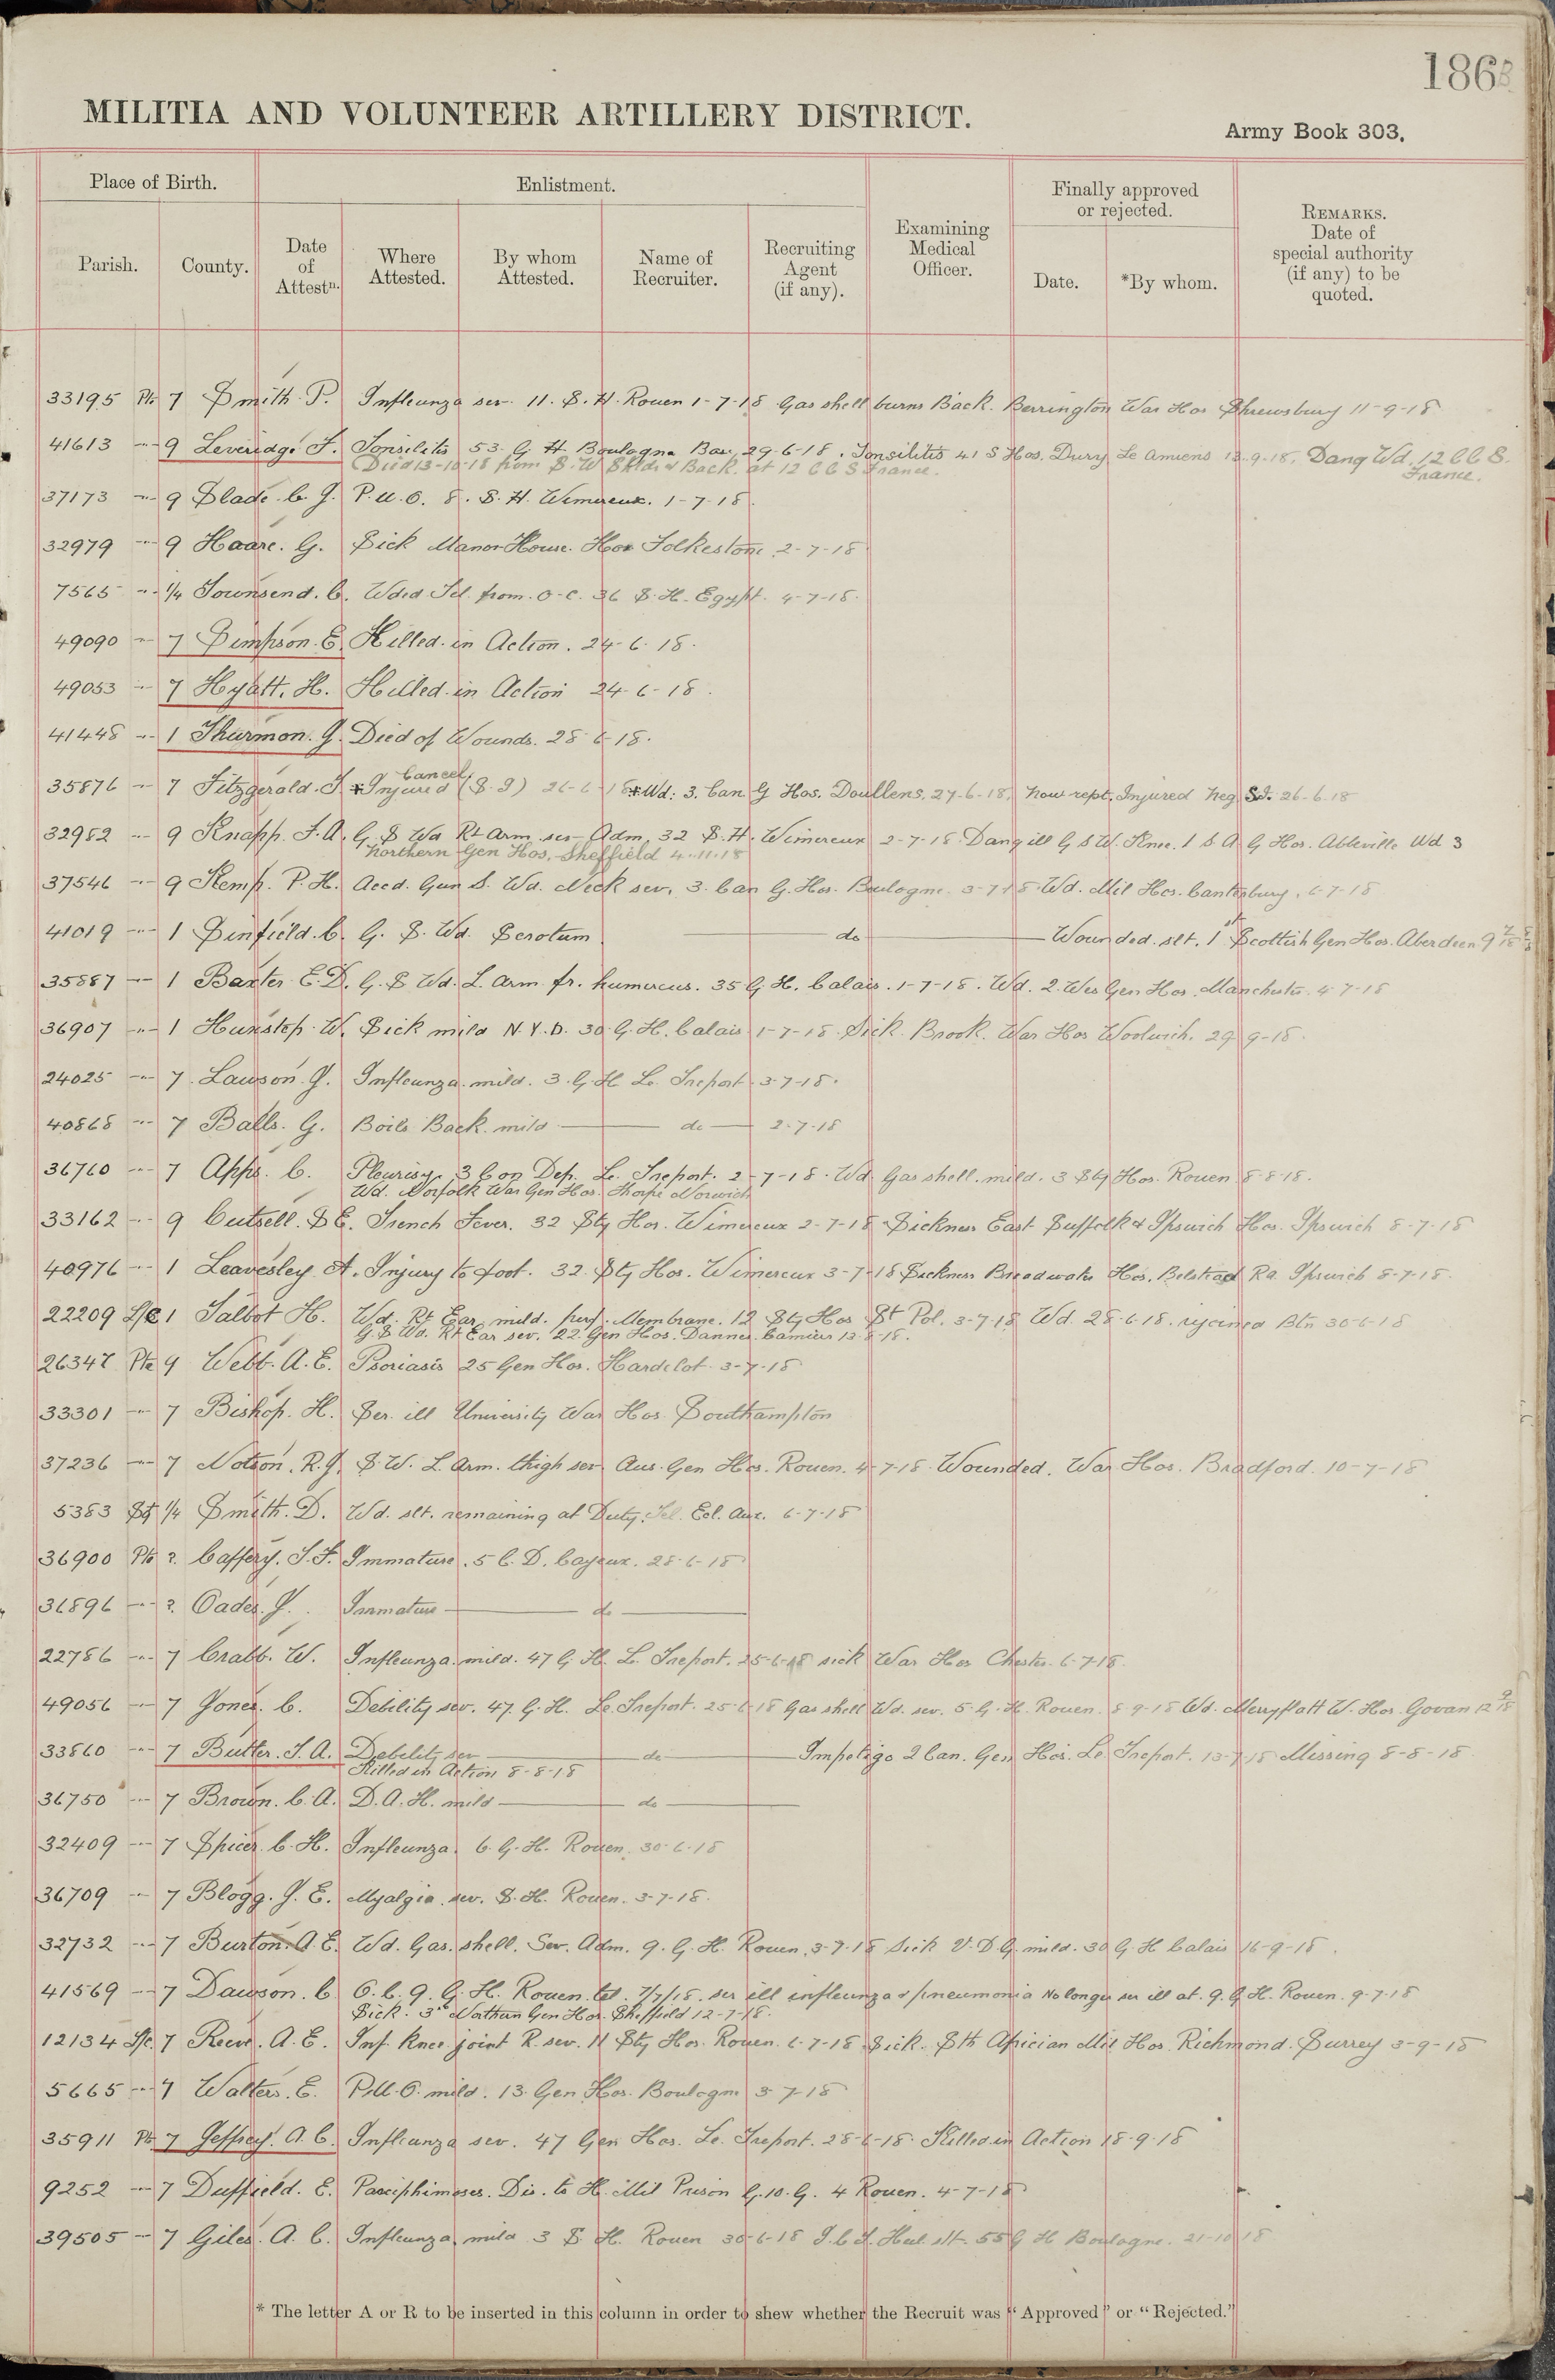 186B
MILITIA AND VOLUNTEER ARTILLERY DISTRICT.
Army Book 303.
Place of Birth.
Enlistment.
Finally approved or rejected.
Parish.
County.
Date of Attestn.
Where Attested.
By whom Attested.
Name of Recruiter.
Recruiting Agent (if any).
Examining Medical Officer.
Date.
*By whom.
REMARKS. Date of special authority (if any) to be quoted.
33195 Pte 7 Smith. P. Infleunza sev. 11. S. H. Rouen 1-7-18 Gas shell burns Back. Berrington War Hos Shrewsbury 11-9-18
41613 -"- 9 Leveridge F. Tonsilitis 53. G. H. Boulogne Bas. 29-6-18. Tonsilitis 41 S Hos. Dury Le Amiens 12-9-18. Dang Wd. 12 C C S. France.
Died 13-10-18 from S. W Shldr & Back. at 12 C C S France.
37173 -"- 9 Slade. C. J. P. U. O. 8. S. H. Wimereux. 1-7-18.
32979 -"- 9 Haare. G. Sick Manor House. Hos Folkestone. 2-7-18
7565 -"- 1/4 Townsend. C. Wded Tel. from. O-C. 36 S. H. Egypt. 4-7-18.
49090 -"- 7 Simpson. E. Killed in Action. 24-6-18.
49053 -"- 7 Hyatt. H. Killed in Action 24-6-18.
41448 -"- 1 Thurmon. J. Died of Wounds. 28-6-18.
35876 -"- 7 Fitzgerald. J. *Injured (S. I) 26-6-18 *Wd: 3. Can G Hos. Doullens. 27-6-18. now rept. Injured Neg S.I. 26-6-18
Cancel
32982 -"- 9 Knapp. F. A. G. S Wd Rt Arm sev Adm. 32 S. H. Wimereux 2-7-18. Dang ill G S W. Knee. 1 S A G Hos. Abbeville Wd 3
Northern Gen Hos, Sheffield 4-11-18
37546 -"- 9 Kemp. P. H. Accd. Gun S. Wd. Neck sev. 3. Can G. Hos. Boulogne. 3-7-18. Wd. Mil Hos. Canterbury. 6-7-18
41019 -"- 1 Sinfield. C. G. S. Wd. Scrotum do Wounded. slt. 1st Scottish Gen Hos. Aberdeen 9
35887 -"- 1 Baxter E. D. G. S Wd. L. Arm fr. humereus. 35 G. H. Calais. 1-7-18. Wd. 2. Wes Gen Hos. Manchester. 4-7-18
36907 -"- 1 Hunstop. W. Sick mild N. Y. D. 30 G. H. Calais 1-7-18 Sick. Brook. War Hos Woolwich. 29-9-18.
24025 -"- 7 Lawson. J. Infleunza. mild. 3. G. H Le. Treport 3-7-18.
40868 -"- 7 Balls. G. Boils Back. mild do 2-7-18
36760 -"- 7 Apps. C. Pleurisy. 3 Con Dep. Le. Treport. 2-7-18. Wd Gas shell. mild. 3 Sty Hos. Rouen 8-8-18.
Wd. Norfolk War Gen Hos. Thorpe Norwich
33162 -"- 9 Cutsell. S E. Trench Fever. 32 Sty Hos. Wimereux 2-7-18 Sickness East Suffolk & Ipswich Hos. Ipswich 8-7-18
40976 -"- 1 Leavesley A. Injury to foot. 32. Sty Hos. Wimereux 3-7-18 Sickness Broadwater Hos. Belstead Rd. Ipswich 8-7-18.
22209 L/C 1 Talbot H. Wd. Rt Ear mild. perf. Membrane. 12 Sty Hos St Pol. 3-7-18 Wd. 28-6-18. rejoined Btn 30-6-18
G. S Wd. Rt Ear sev. 22 Gen Hos. Dannes Camiers 13-8-18.
26347 Pte 9 Webb. A. E. Psoriasis 25 Gen Hos. Hardelot 3-7-18
33301 -"- 7 Bishop. H. Ser. ill University War Hos. Southampton
37236 -"- 7 Notson. R. J. S. W. L. Arm. thigh sev Aus. Gen Hos. Rouen. 4-7-18. Wounded. War Hos. Bradford. 10-7-18
5383 Sgt 1/4 Smith. D. Wd. slt. remaining at Duty. Tel. Ecl. Aux. 6-7-18
36900 Pte ?. Caffery. J. F. Immature. 5 C. D. Cayeux. 28-6-18
36896 -"- ?. Oades. J. Immature do
22786 -"- 7 Crabb. W. Infleunza. mild. 47 G. H. Le Treport. 25-6-18 sick War Hos Chester. 6-7-18.
49056 -"- 7 Jones. C. Debility sev. 47. G. H. Le Treport. 25-6-18 Gas shell Wd. sev. 5. G. H. Rouen. 8-9-18 Wd. Merryflatt W. Hos. Govan 12 9/18
33860 -"- 7 Butler. J. A. Debility sev do Impetigo 2 Can. Gen Hos. Le Treport. 13-7-18 Missing 8-8-18.
Killed in Action 8-8-18
36750 -"- 7 Brown. C. A. D. A. H. mild do
32409 -"- 7 Spicer. C. H. Infleunza. 6. G. H. Rouen. 30-6-18
36709 -"- 7 Blogg. J. E. Myalgia. sev. S. H. Rouen. 3-7-18.
32732 -"- 7 Burton. A. E. Wd. Gas. shell. Sev. Adm. 9. G. H. Rouen. 3-7-18 Sick V. D G. mild. 30 G. H Calais 16-9-18.
41569 -"- 7 Dawson. C O. C. 9. G. H. Rouen tel. 7/7/18. ser ill infleunza & pneumonia No longer ser ill at. 9. G. H. Rouen. 9-7-18
Sick. 3rd Northern Gen Hos. Sheffield 12-7-18.
12134 L/c. 7 Reeve. A. E. Inf. knee joint R. sev. 11 Sty Hos. Rouen. 6-7-18 Sick. Sth African Mil Hos. Richmond. Surrey 3-9-18
5665 -"- 7 Walters. E. P. U. O. mild. 13. Gen Hos. Boulogne 3-7-18
35911 Pte 7 Jeffrey. A. C. Infleunza sev. 47 Gen Hos. Le. Treport. 28-6-18. Killed in Action 18-9-18
9252 -"- 7 Duffield. E. Paraphimoses. Dis. to H. Mil Prison G. 10. G. 4 Rouen. 4-7-18
39505 -"- 7 Giles. A. C. Infleunza. mild 3 S. H. Rouen 30-6-18 I. C. T. Heel slt. 55 G H Boulogne. 21-10-18
* The letter A or R to be inserted in this column in order to shew whether the Recruit was "Approved" or "Rejected."